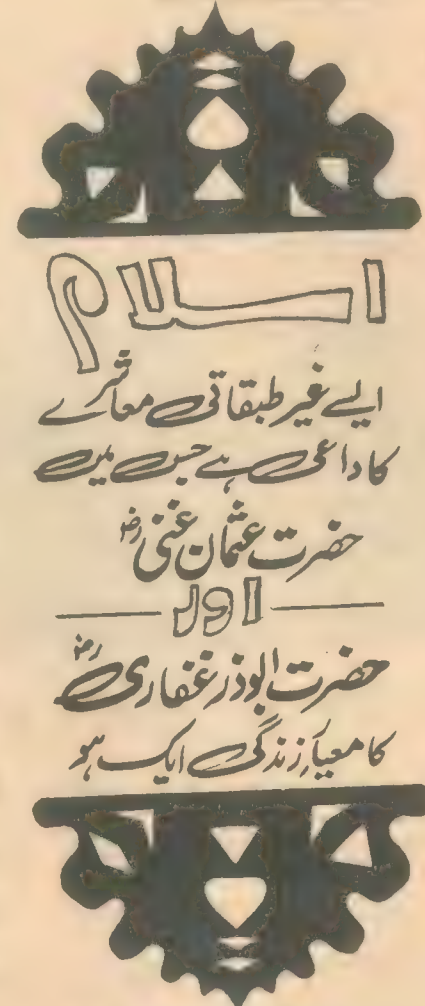 اسلام
ایسے غیر طبقاتی معاشرے
کا داعی ہے جس میں
حضرت عثمان غنیؓ
اور
حضرت ابوذر غفاریؓ
کا معیارِ زندگی ایک ہو